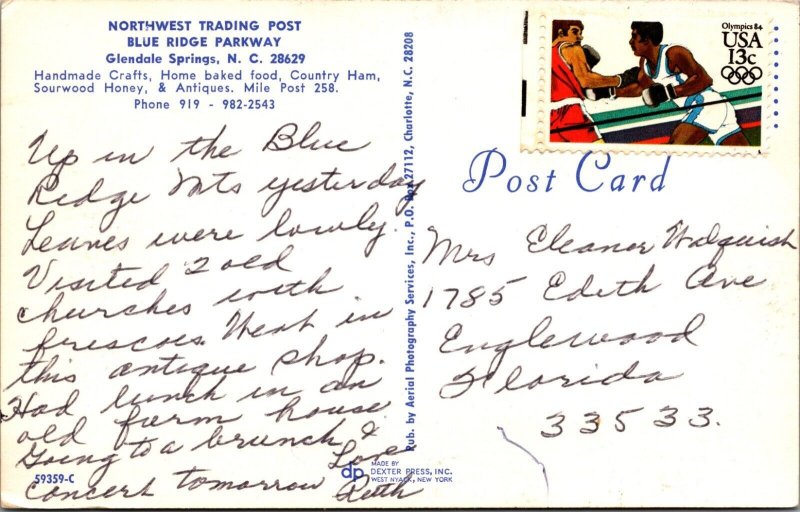 NORTHWEST TRADING POST
BLUE RIDGE PARKWAY
Glendale Springs, N. C. 28629
Handmade Crafts, Home baked food, Country Ham,
Sourwood Honey, & Antiques. Mile Post 258.
Phone 919 - 982-2543
Up in the Blue
Ridge Mts yesterday
Leaves were lovely.
Visited 2 old
churches with
frescoes. Went in
this antique shop.
Had lunch in an
old farm house
Going to a brunch &
concert tomorrow
Love
Ruth
59359-C
Pub. by Aerial Photography Services, Inc., P.O. Box 27112, Charlotte, N.C. 28208
dp
MADE BY
DEXTER PRESS, INC.
WEST NYACK, NEW YORK
Olympics 84
USA
13c
Post Card
Mrs Eleanor Walquish
1785 Edith Ave
Englewood
Florida
33533.